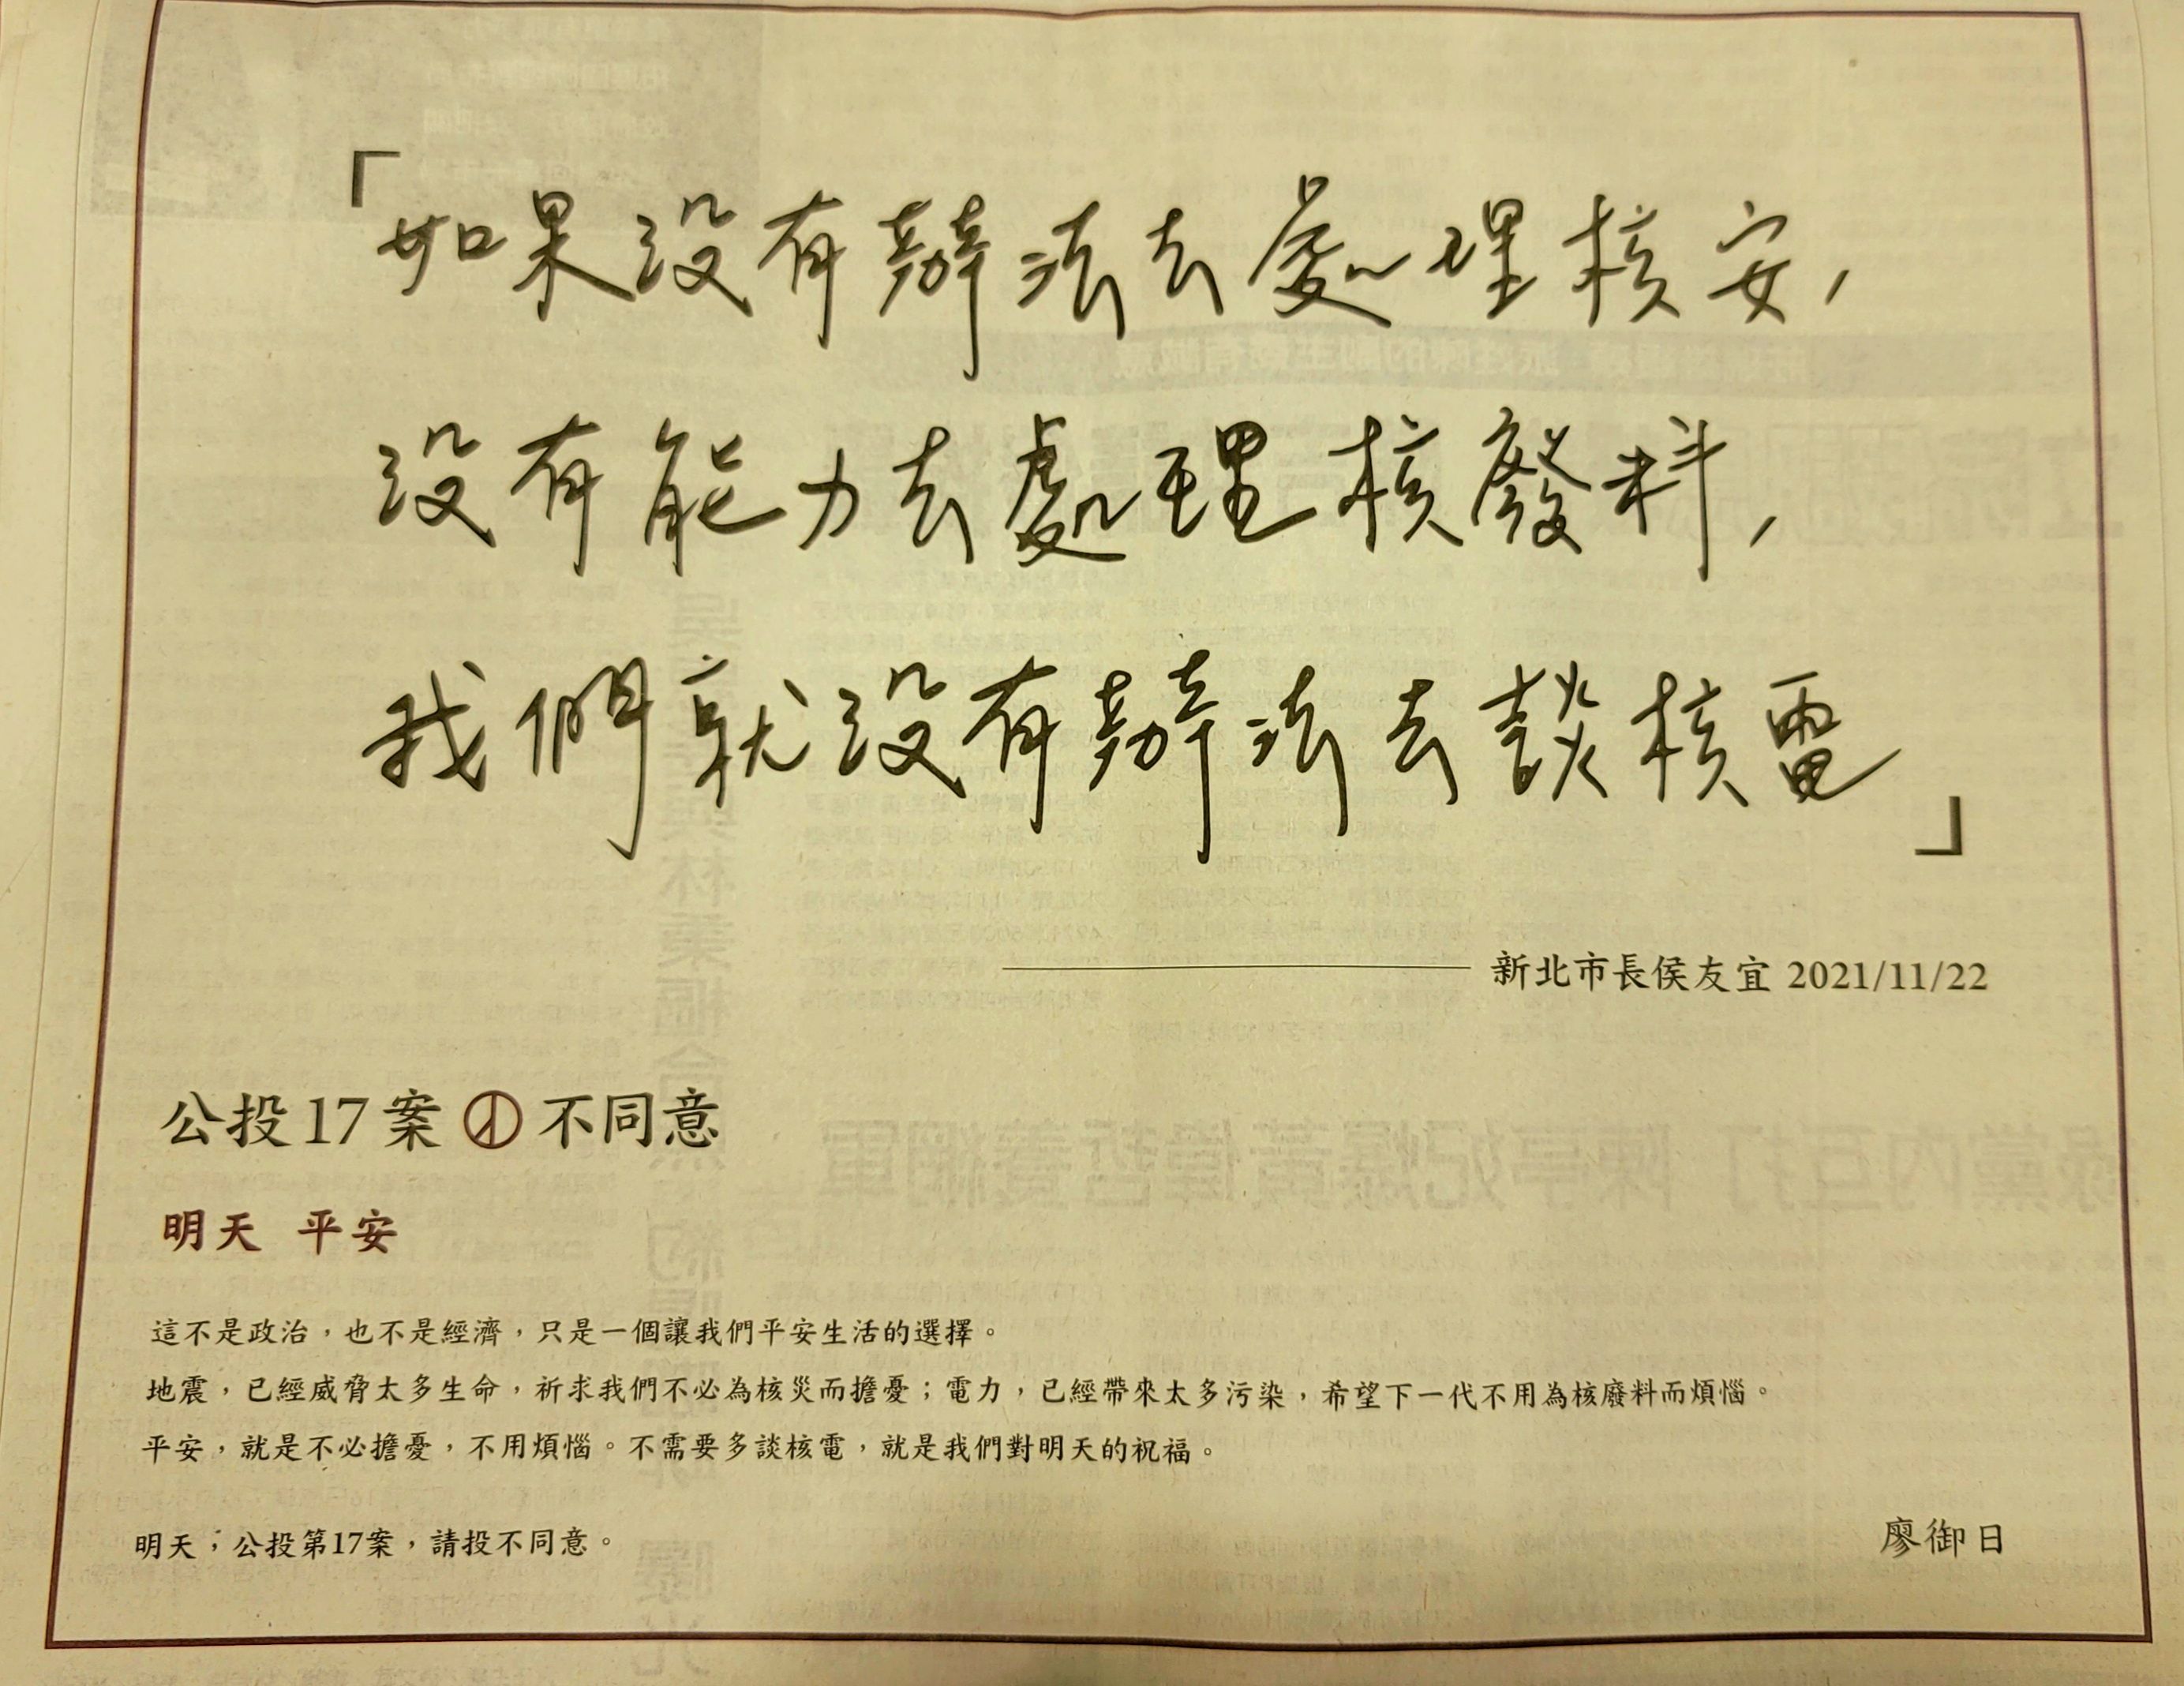 「如果沒有辦法去處理核安，
沒有能力去處理核廢料，
我們就沒有辦法去談核電」
新北市長侯友宜 2021/11/22
公投17案 不同意
明天 平安
這不是政治，也不是經濟，只是一個讓我們平安生活的選擇。
地震，已經威脅太多生命，祈求我們不必為核災而擔憂；電力，已經帶來太多污染，希望下一代不用為核廢料而煩惱。
平安，就是不必擔憂，不用煩惱。不需要多談核電，就是我們對明天的祝福。
明天，公投第17案，請投不同意。
廖御日